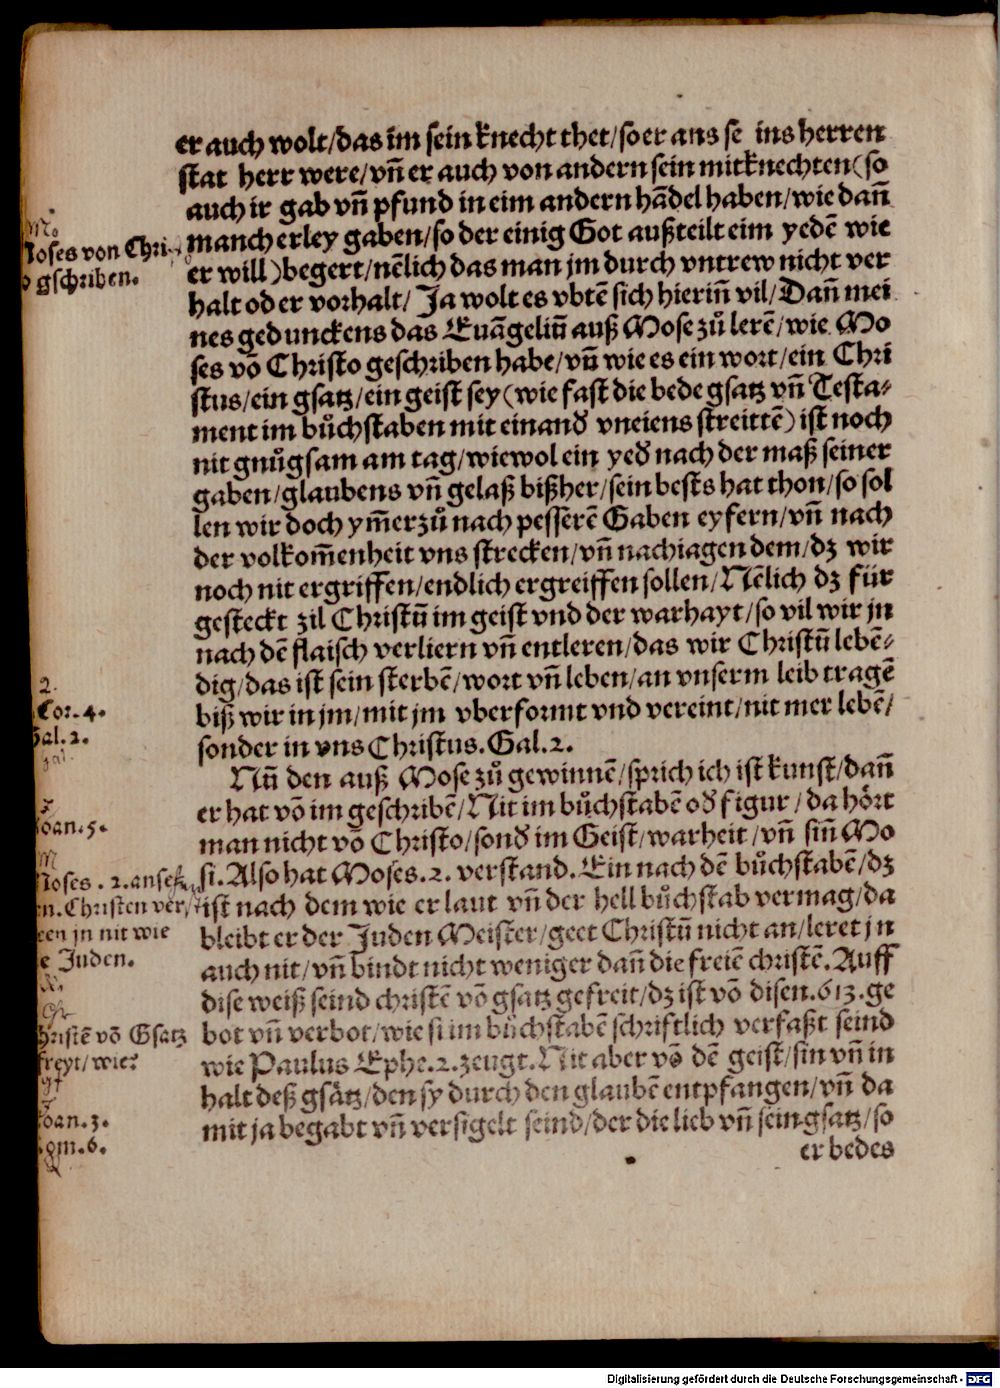 er auch wolt/das im̄ sein knecht thet/so er ans se ins herren
stat herr were/vn̄ er auch von andern sein mitknechten(so
auch ir gab vn̄ pfund in eim andern hādel haben/wie dan̄
manch erley gaben/so der einig Got außteilt eim yedē wie
er will)begert/nēlich das man jm durch vntrew nicht ver
halt oder vorhalt/ Ja wolt es vbtē sich hierin̄ vil/Dan̄ mei
nes gedunckens das Euāgeliū auß Mose zů lerē/wie Mo
ses vō Christo geschriben habe/vn̄ wie es ein wort/ein Chri
stus/ein gsatz/ein geist sey(wie fast die bede gsatz vn̄ Testa-
ment im bůchstaben mit einand vneiens streittē)ist noch
nit gnůgsam am tag/wiewol ein yed nach der maß seiner
gaben/glaubens vn̄ gelaß bißher/sein bests hat thon/so sol
len wir doch ym̄erzů nach pesserē Gaben eyfern/vn̄ nach
der volkom̄enheit vns strecken/vn̄ nachiagen dem/dz wir
noch nit ergriffen/endlich ergreiffen sollen/Nēlich dz für
gesteckt zil Christū im geist vnd der warhayt/so vil wir jn
nach dē flaisch verliern vn̄ entleren/das wir Christū lebē-
dig/das ist sein sterbē/wort vn̄ leben/an vnserm leib tragē
biß wir in jm/mit jm vberformt vnd vereint/nit mer lebē/
sonder in vns Christus.Gal.2.
Nū den auß Mose zů gewinnē/sprich ich ist kunst/dan̄
er hat vō im geschribē/Nit im bůchstabē od figur/da hört
man nicht vō Christo/sond im Geist/warheit/vn̄ sin̄ Mo
si.Also hat Moses.2.verstand.Ein nach dē bůchstabē/dz
ist nach dem wie er laut vn̄ der hell bůchstab vermag/da
bleibt er der Juden Meister/geet Christū nicht an/leret jn
auch nit/vn̄ bindt nicht weniger dan̄ die freiē christē.Auff
dise weiß seind christē vō gsatz gefreit/dz ist vō disen.613.ge
bot vn̄ verbot/wie si im bůchstabē schriftlich verfaßt seind
wie Paulus Ephe.2.zeugt.Nit aber vō dē geist/sin vn̄ in
halt deß gsätz/den sy durch den glaubē entpfangen/vn̄ da
mit ja begabt vn̄ versigelt seind/der die lieb vn̄ sein gsatz/so
er bedes
Moses von Chri-
gschriben.
2.
Cor.4.
Gal.2.
Joan.5.
Moses.2.anseh
n.Christen ver
een jn nit wie
e Juden.
Christē vō Gsatz
freyt/wie?
Joan.3.
Rom.6.
Digitalisierung gefördert durch die Deutsche Forschungsgemeinschaft - DFG